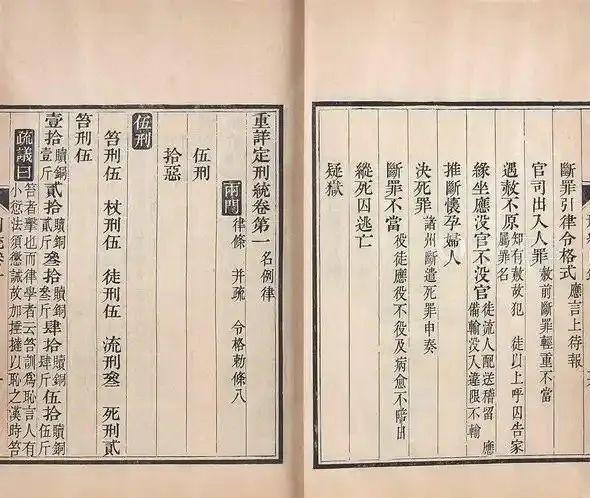 斷罪引律令格式 應言上待報
官司出入人罪 赦前斷罪輕重不當
遇赦不原 知有赦故犯 徒以上呼囚告家屬罪名
緣坐應没官不没官 徒流人配送稽留 應備輸没入違限不輸
推斷懷孕婦人
決死罪 諸州斷遣死罪申奏
斷罪不當 役徒應役不役及病愈不陪日
縱死囚逃亡
疑獄
重詳定刑統卷第一 名例律
兩門 律條 并疏 令格勅條八
伍刑
拾惡
伍刑
笞刑伍 杖刑伍 徒刑伍 流刑叁 死刑貳
笞刑伍
壹拾 贖銅壹斤 貳拾 贖銅貳斤 叁拾 贖銅叁斤 肆拾 贖銅肆斤 伍拾 贖銅伍斤
疏議曰 笞者擊也而律學者云笞訓爲恥言人有
小愆法須懲誡故加捶撻以恥之漢時笞